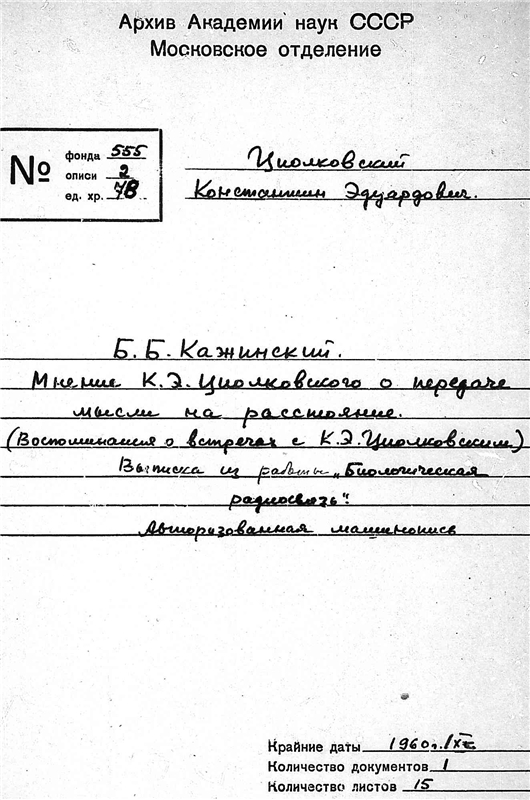 Архив Академии наук СССР
Московское отделение
№
фонда 555
описи 2
ед. хр. 78
Циолковский
Константин Эдуардович.
Б. Б. Кажинский.
Мнение К.Э.Циолковского о передаче
мысли на расстояние.
(Воспоминания о встречах с К.Э.Циолковским)
Выписка из работы „Биологическая
радиосвязь".
Авторизованная машинопись
Крайние даты 1960г./IX
Количество документов 1
Количество листов 15